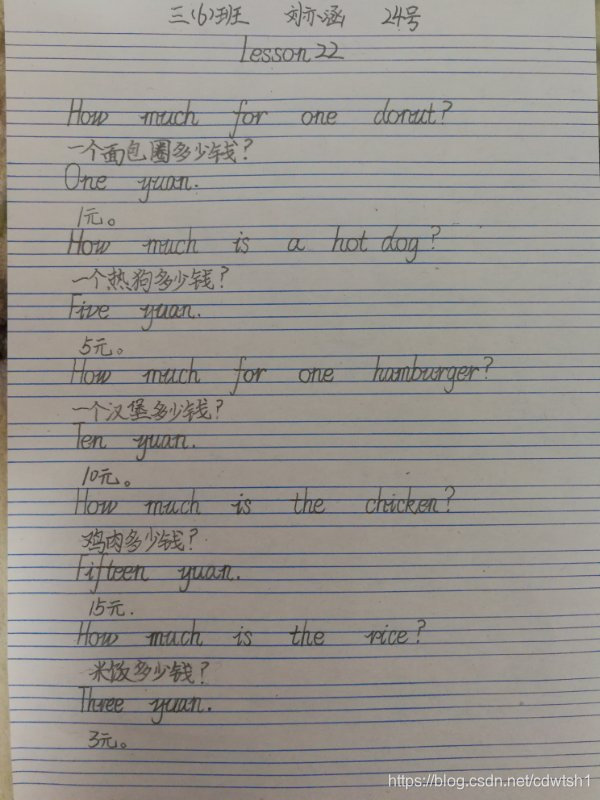 三(6)班 刘亦涵 24号
Lesson 22
How much for one donut?
一个面包圈多少钱?
One yuan.
1元。
How much is a hot dog?
一个热狗多少钱?
Five yuan.
5元。
How much for one humburger?
一个汉堡多少钱?
Ten yuan.
10元。
How much is the chicken?
鸡肉多少钱?
Fifteen yuan.
15元.
How much is the rice?
米饭多少钱?
Three yuan.
3元。
https://blog.csdn.net/cdwtsh1